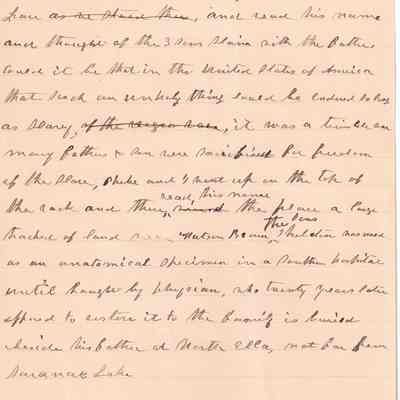 ~~as he stood there~~, and read his name
and thought of the 3 sons slain with the Father
could it be that in the United States of America
that such an unholy thing could be endured so long
as slavery, ~~of the negro race~~, it was a
many Fathers & son were sacrificed for freedom
of the slave, and I went up on the top of
the rock and there read his name the place a large
tracked of land Watson Brown, the sons skeleton was used
as an anatomical specimen in a southern hospital
until bought by physician, who twenty years later
offered to restore it to the family is buried
beside his Father at North Elba, not far from
Saranac Lake